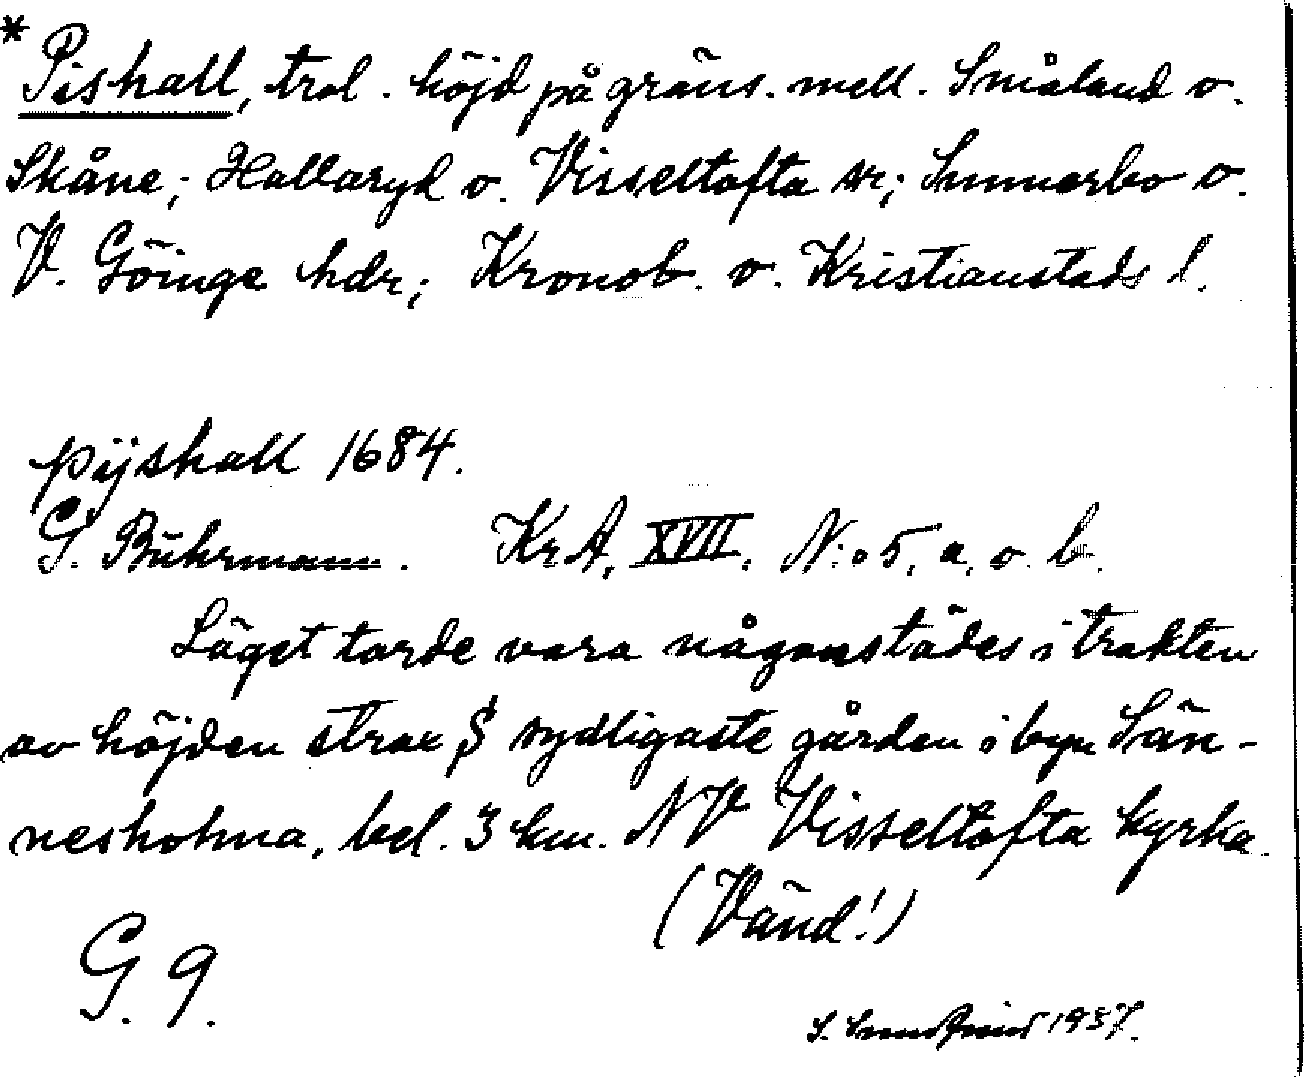 * Pishall, trol. höjd på gräns. mell. Småland o.
Skåne; Hallaryd o. Visseltofta sr; Sunnerbo o.
V. Göinge hdr; Kronob. o. Kristianstads l.
pijshall 1684.
G. Buhrmann. KrA, XVII. N:o 5, a. o. b.
Läget torde vara någonstädes i trakten
av höjden strax S sydligaste gården i byn Sän-
nesholma, bel. 3 km. NV Visseltofta kyrka.
(Vänd!)
G. 9.
S. 1937.